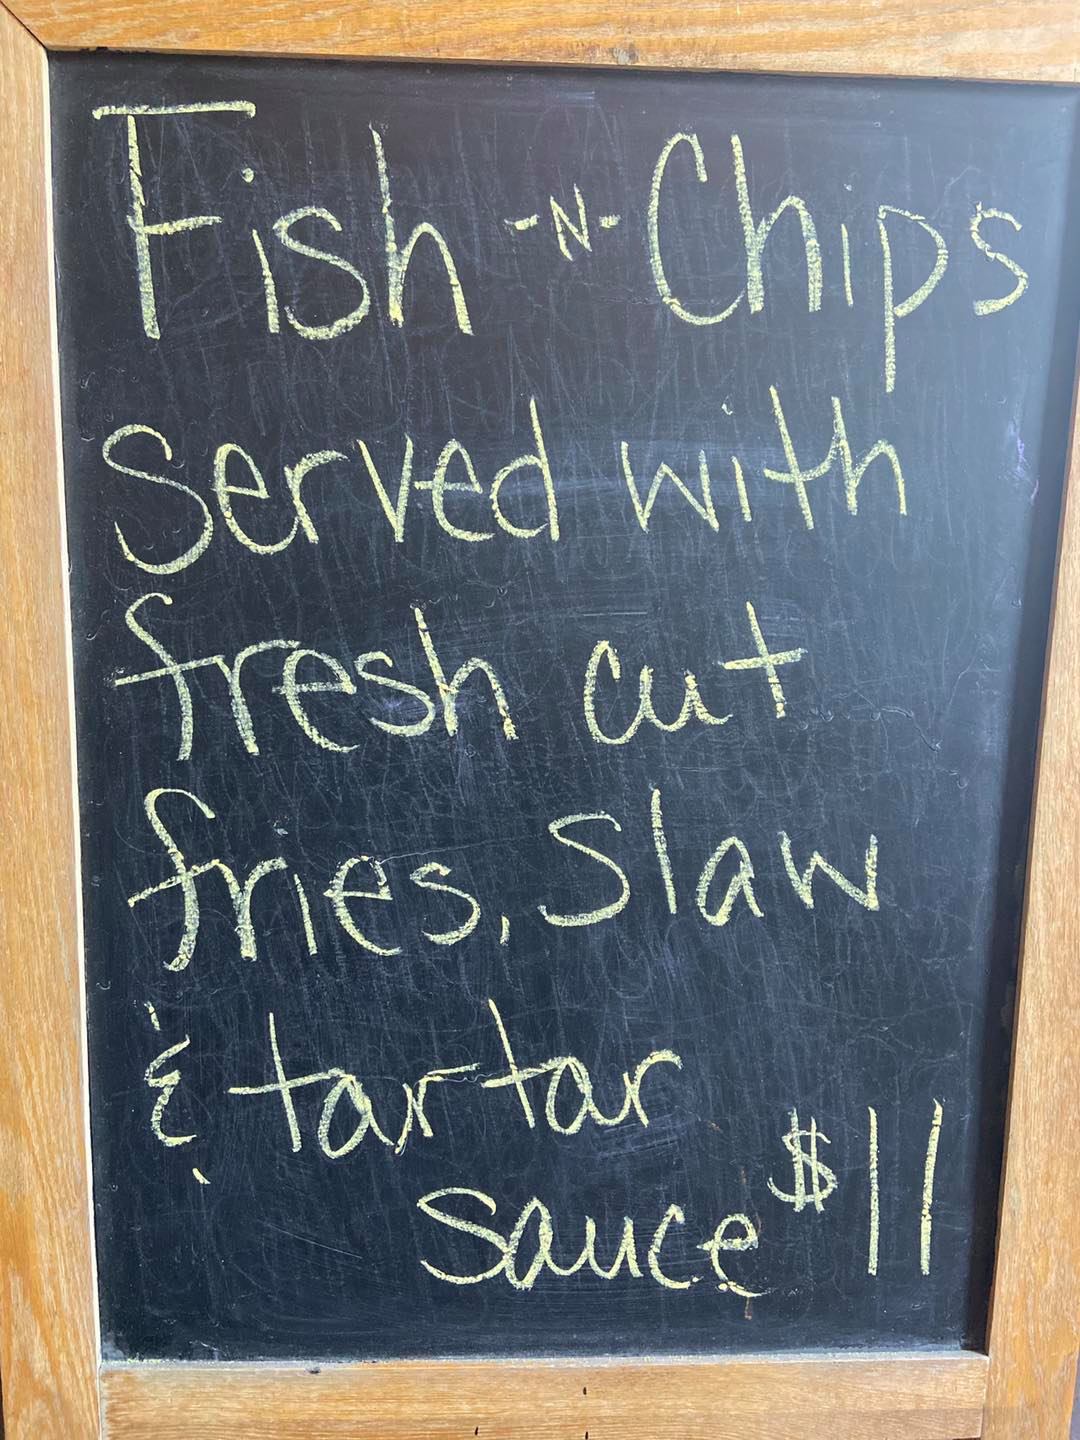 Fish -N- Chips
Served with
fresh cut
fries, Slaw
& tartar
sauce $11